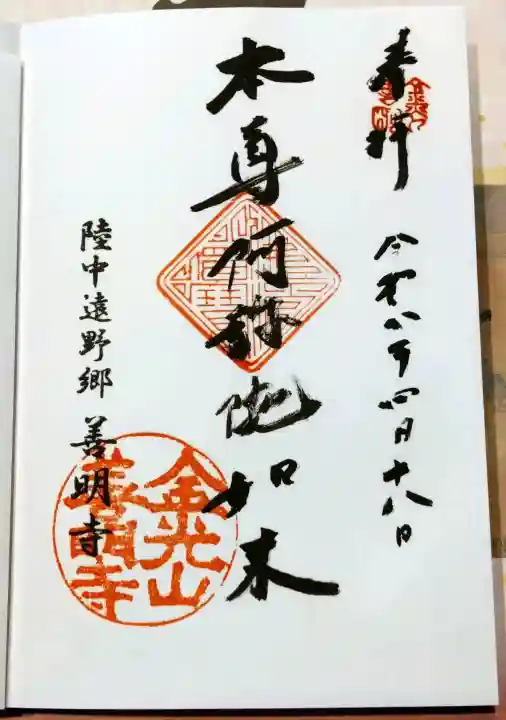 奉拝
令和八年四月十八日
本尊阿弥陀如来
陸中遠野郷 善明寺
金光山
善明寺